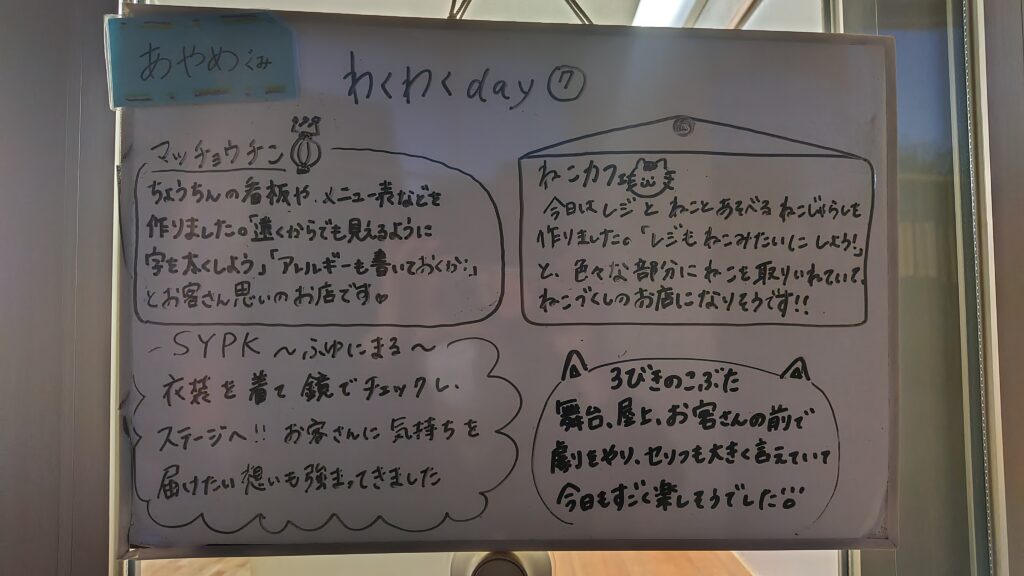 あやめぐみ
わくわくday⑦
マッチョウチン
ちょうちんの看板や、メニュー表などを
作りました。「遠くからでも見えるように
字を太くしよう」「アレルギーも書いておくか!」
とお客さん思いのお店です♡
ねこカフェ
今日はレジとねことあそべるねこじゃらしを
作りました。「レジもねこみたいにしよう!」
と、色々な部分にねこを取りいれていて、
ねこづくしのお店になりそうです!!
SYPK 〜ふゆにまる〜
衣装を着て鏡でチェックし、
ステージへ!! お客さんに気持ちを
届けたい想いも強まってきました
3びきのこぶた
舞台、屋上、お客さんの前で
劇をやり、セリフも大きく言えていて
今日もすごく楽しそうでした